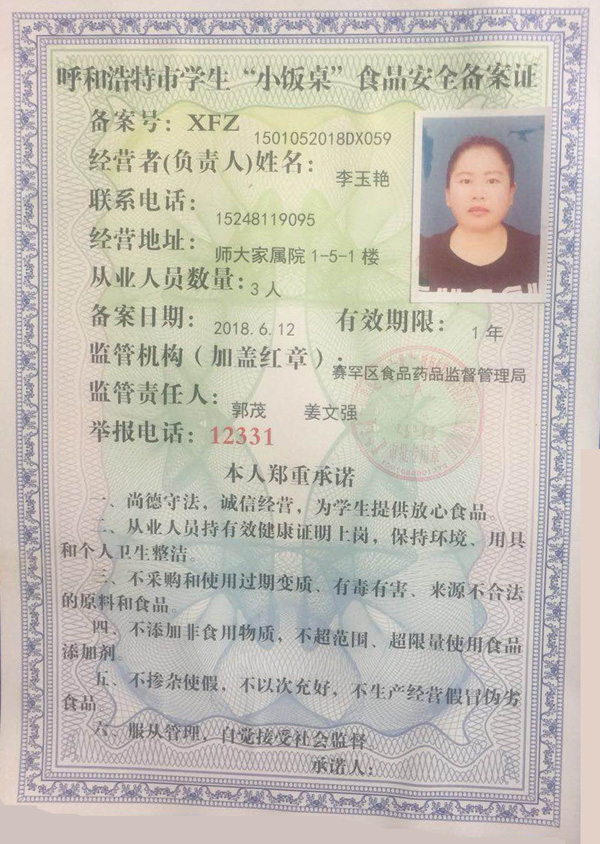 呼和浩特市学生“小饭桌”食品安全备案证
备案号：XFZ 1501052018DX059
经营者(负责人)姓名： 李玉艳
联系电话： 15248119095
经营地址： 师大家属院 1-5-1 楼
从业人员数量：3 人
备案日期： 2018.6.12 有效期限： 1 年
监管机构（加盖红章）： 赛罕区食品药品监督管理局
监管责任人： 郭茂 姜文强
举报电话：12331
本人郑重承诺
一、尚德守法，诚信经营，为学生提供放心食品。
二、从业人员持有效健康证明上岗，保持环境、用具
和个人卫生整洁。
三、不采购和使用过期变质、有毒有害、来源不合法
的原料和食品。
四、不添加非食用物质，不超范围、超限量使用食品
添加剂。
五、不掺杂使假，不以次充好，不生产经营假冒伪劣
食品。
六、服从管理，自觉接受社会监督
承诺人：